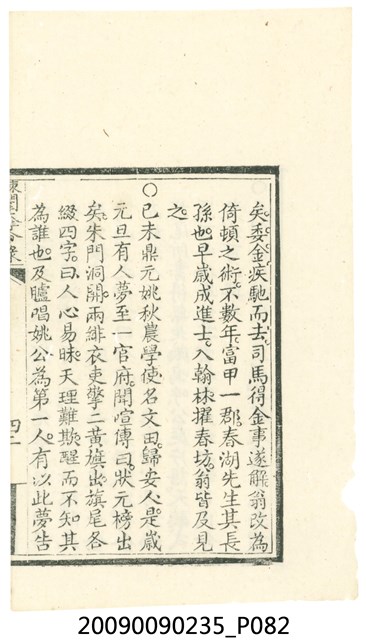 矣委金疾馳而去司馬得金事遂解翁改為
倚頓之術不數年富甲一郡春湖先生其長
孫也早歲成進士入翰林擢春坊翁皆及見
之
○
己未鼎元姚秋農學使名文田歸安人是歲
元旦有人夢至一官府聞喧傳曰狀元榜出
矣朱門洞開兩緋衣吏擎二黃旗出旗尾各
綴四字曰人心易昧天理難欺醒而不知其
為誰也及臚唱姚公為第一人有以此夢告
20090090235_P082